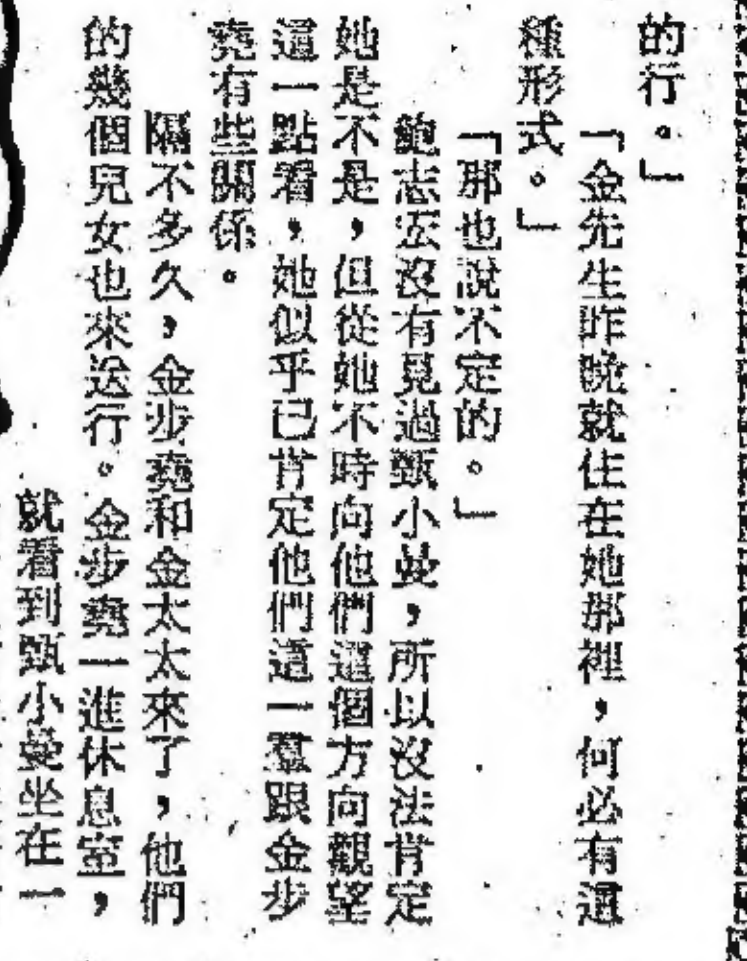 的行。」
「金先生昨晚就住在她那裡，何必有這
種形式。」
「那也說不定的。」
鮑志宏沒有見過甄小曼，所以沒法肯定
她是不是，但從她不時向他們這個方向觀望
這一點看，她似乎已肯定他們這一羣跟金步
堯有些關係。
隔不多久，金步堯和金太太來了，他們
的幾個兒女也來送行。金步堯一進休息室，
就看到甄小曼坐在一